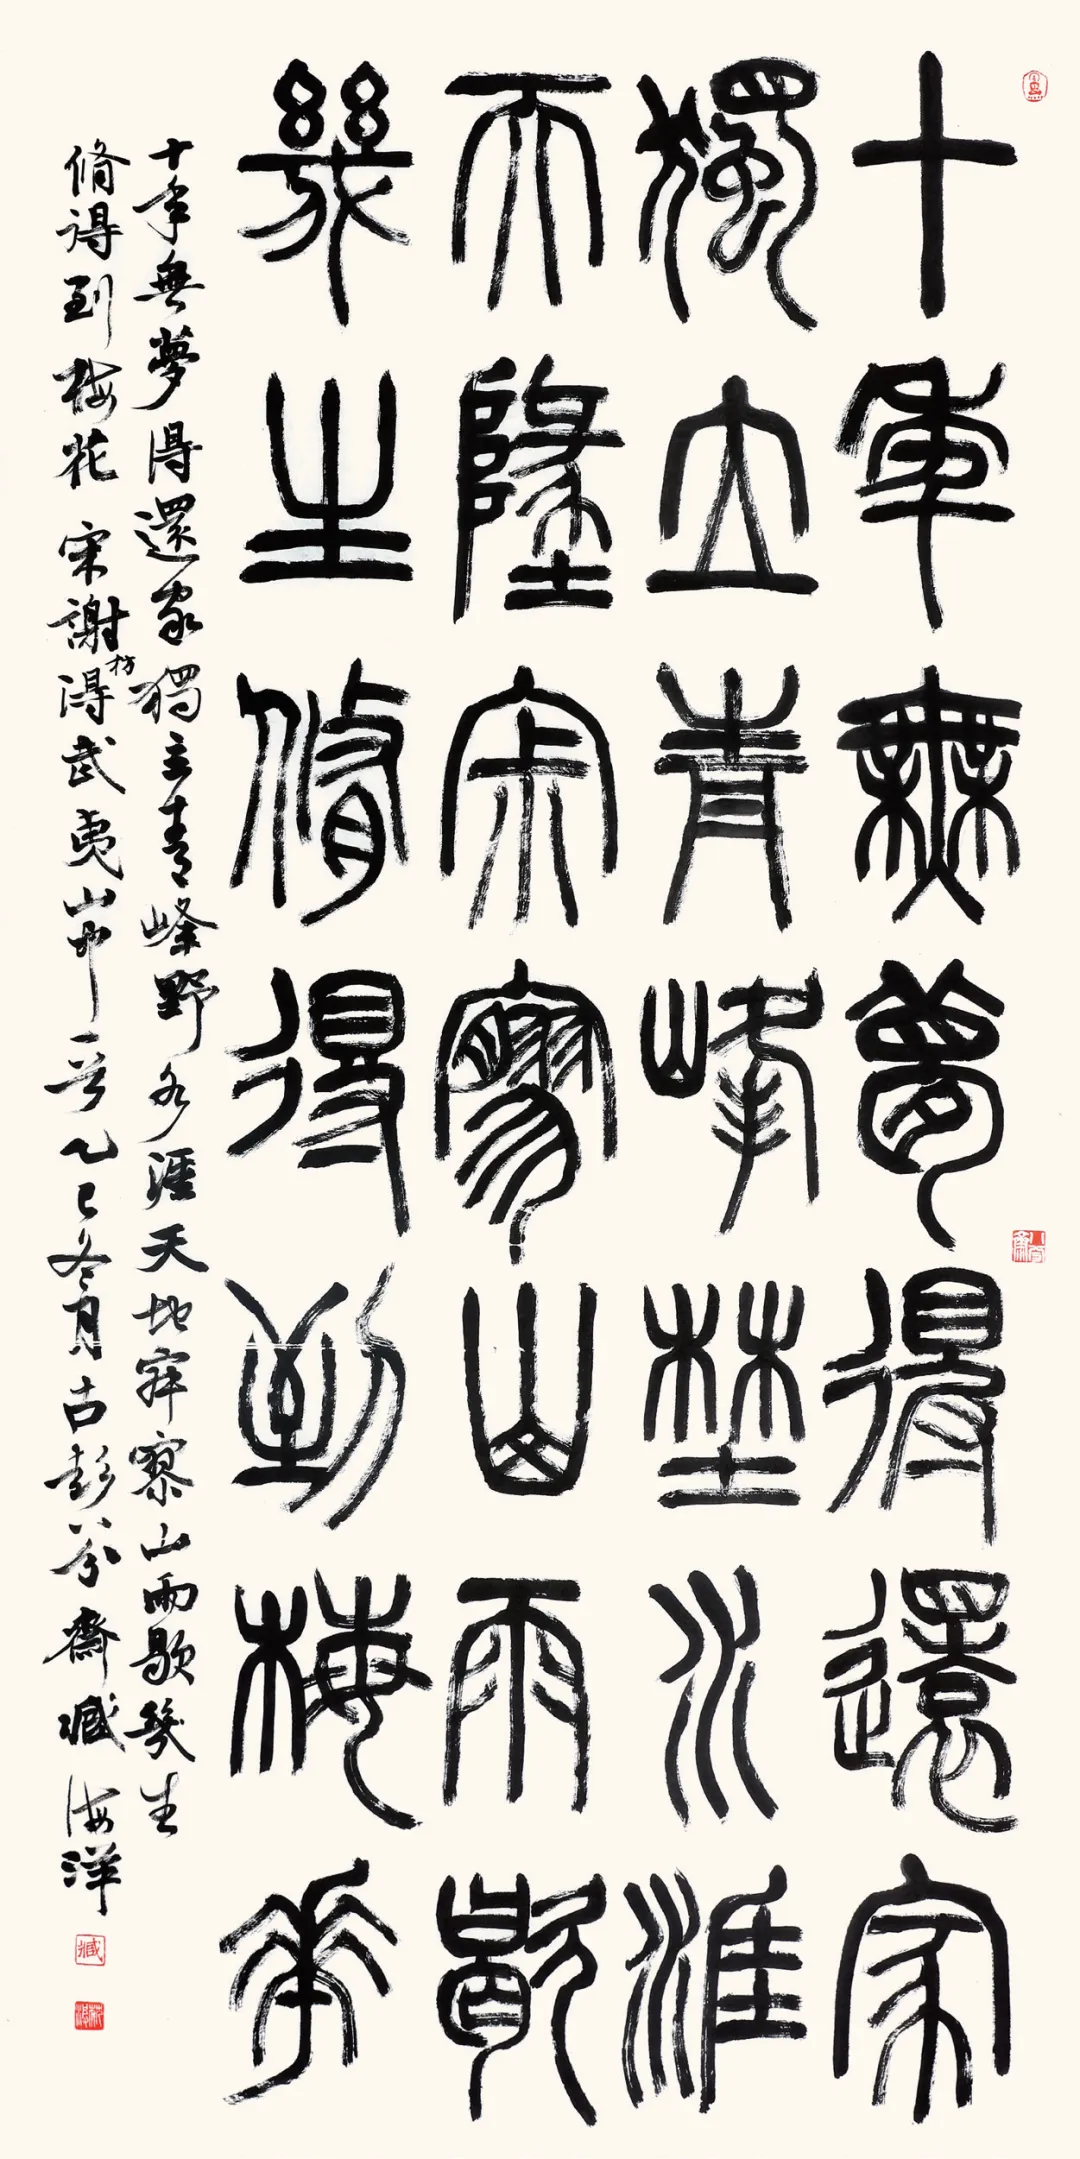 十年無夢得還家
獨立青峰埜水涯
天地㝛寥山雨歇
幾生脩得到梅花
十年無夢得還家獨立青峰野水涯天地寂寥山雨歇幾生
脩得到梅花 宋謝枋得武夷山中一首乙巳冬月古彭八分齋臧海洋